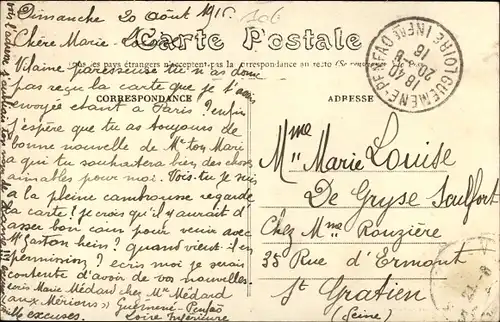 Dimanche 20 Août 1916
Chère Marie-Louise
Carte Postale
Tous les pays étrangers n'acceptent pas la correspondance au recto
CORRESPONDANCE
ADRESSE
Vilaine paresseuse tu n'as donc
pas reçu la carte que je t'avais
envoyée étant à Paris? enfin
J'espère que tu as toujours de
bonne nouvelle de Mr ton Mari
a qui tu souhaitera bien des choses
aimables pour moi. Vois-tu je suis
à la pleine cambrousse regarde
la carte! je crois qu'il y aurait d'
asser bon coin pour venir avec
Mr Gaston hein? quand vient-il en
permission? écris moi je serai
contente d'avoir de vos nouvelles
écris Marie Médard chez Mme Médard
aux Mérions Guémené-Penfao
Loire Inférieure
Mille excuses.
GUEMENE-PENFAO
LOIRE INFRE
18 40
20 - 8
16
Mme
Marie Louise
De Gryse Saulfort
Chez Mme Rouzière
35 Rue d'Ermont
St Gratien
(Seine)
21 8